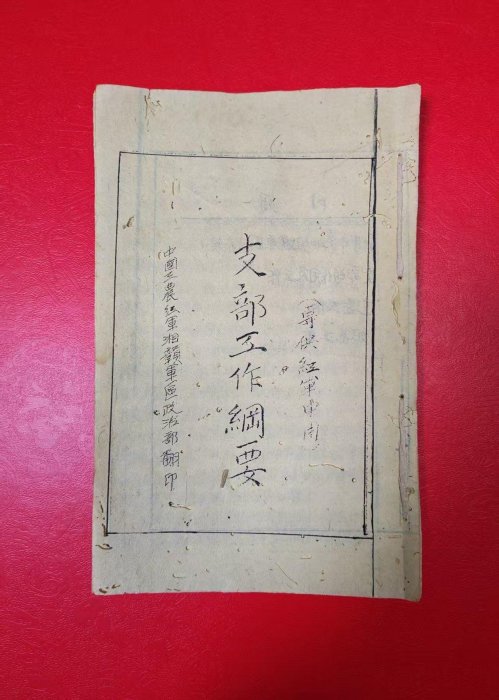 （專供紅軍中用）
支部工作綱要
中國工農紅軍湘贛軍區政治部翻印